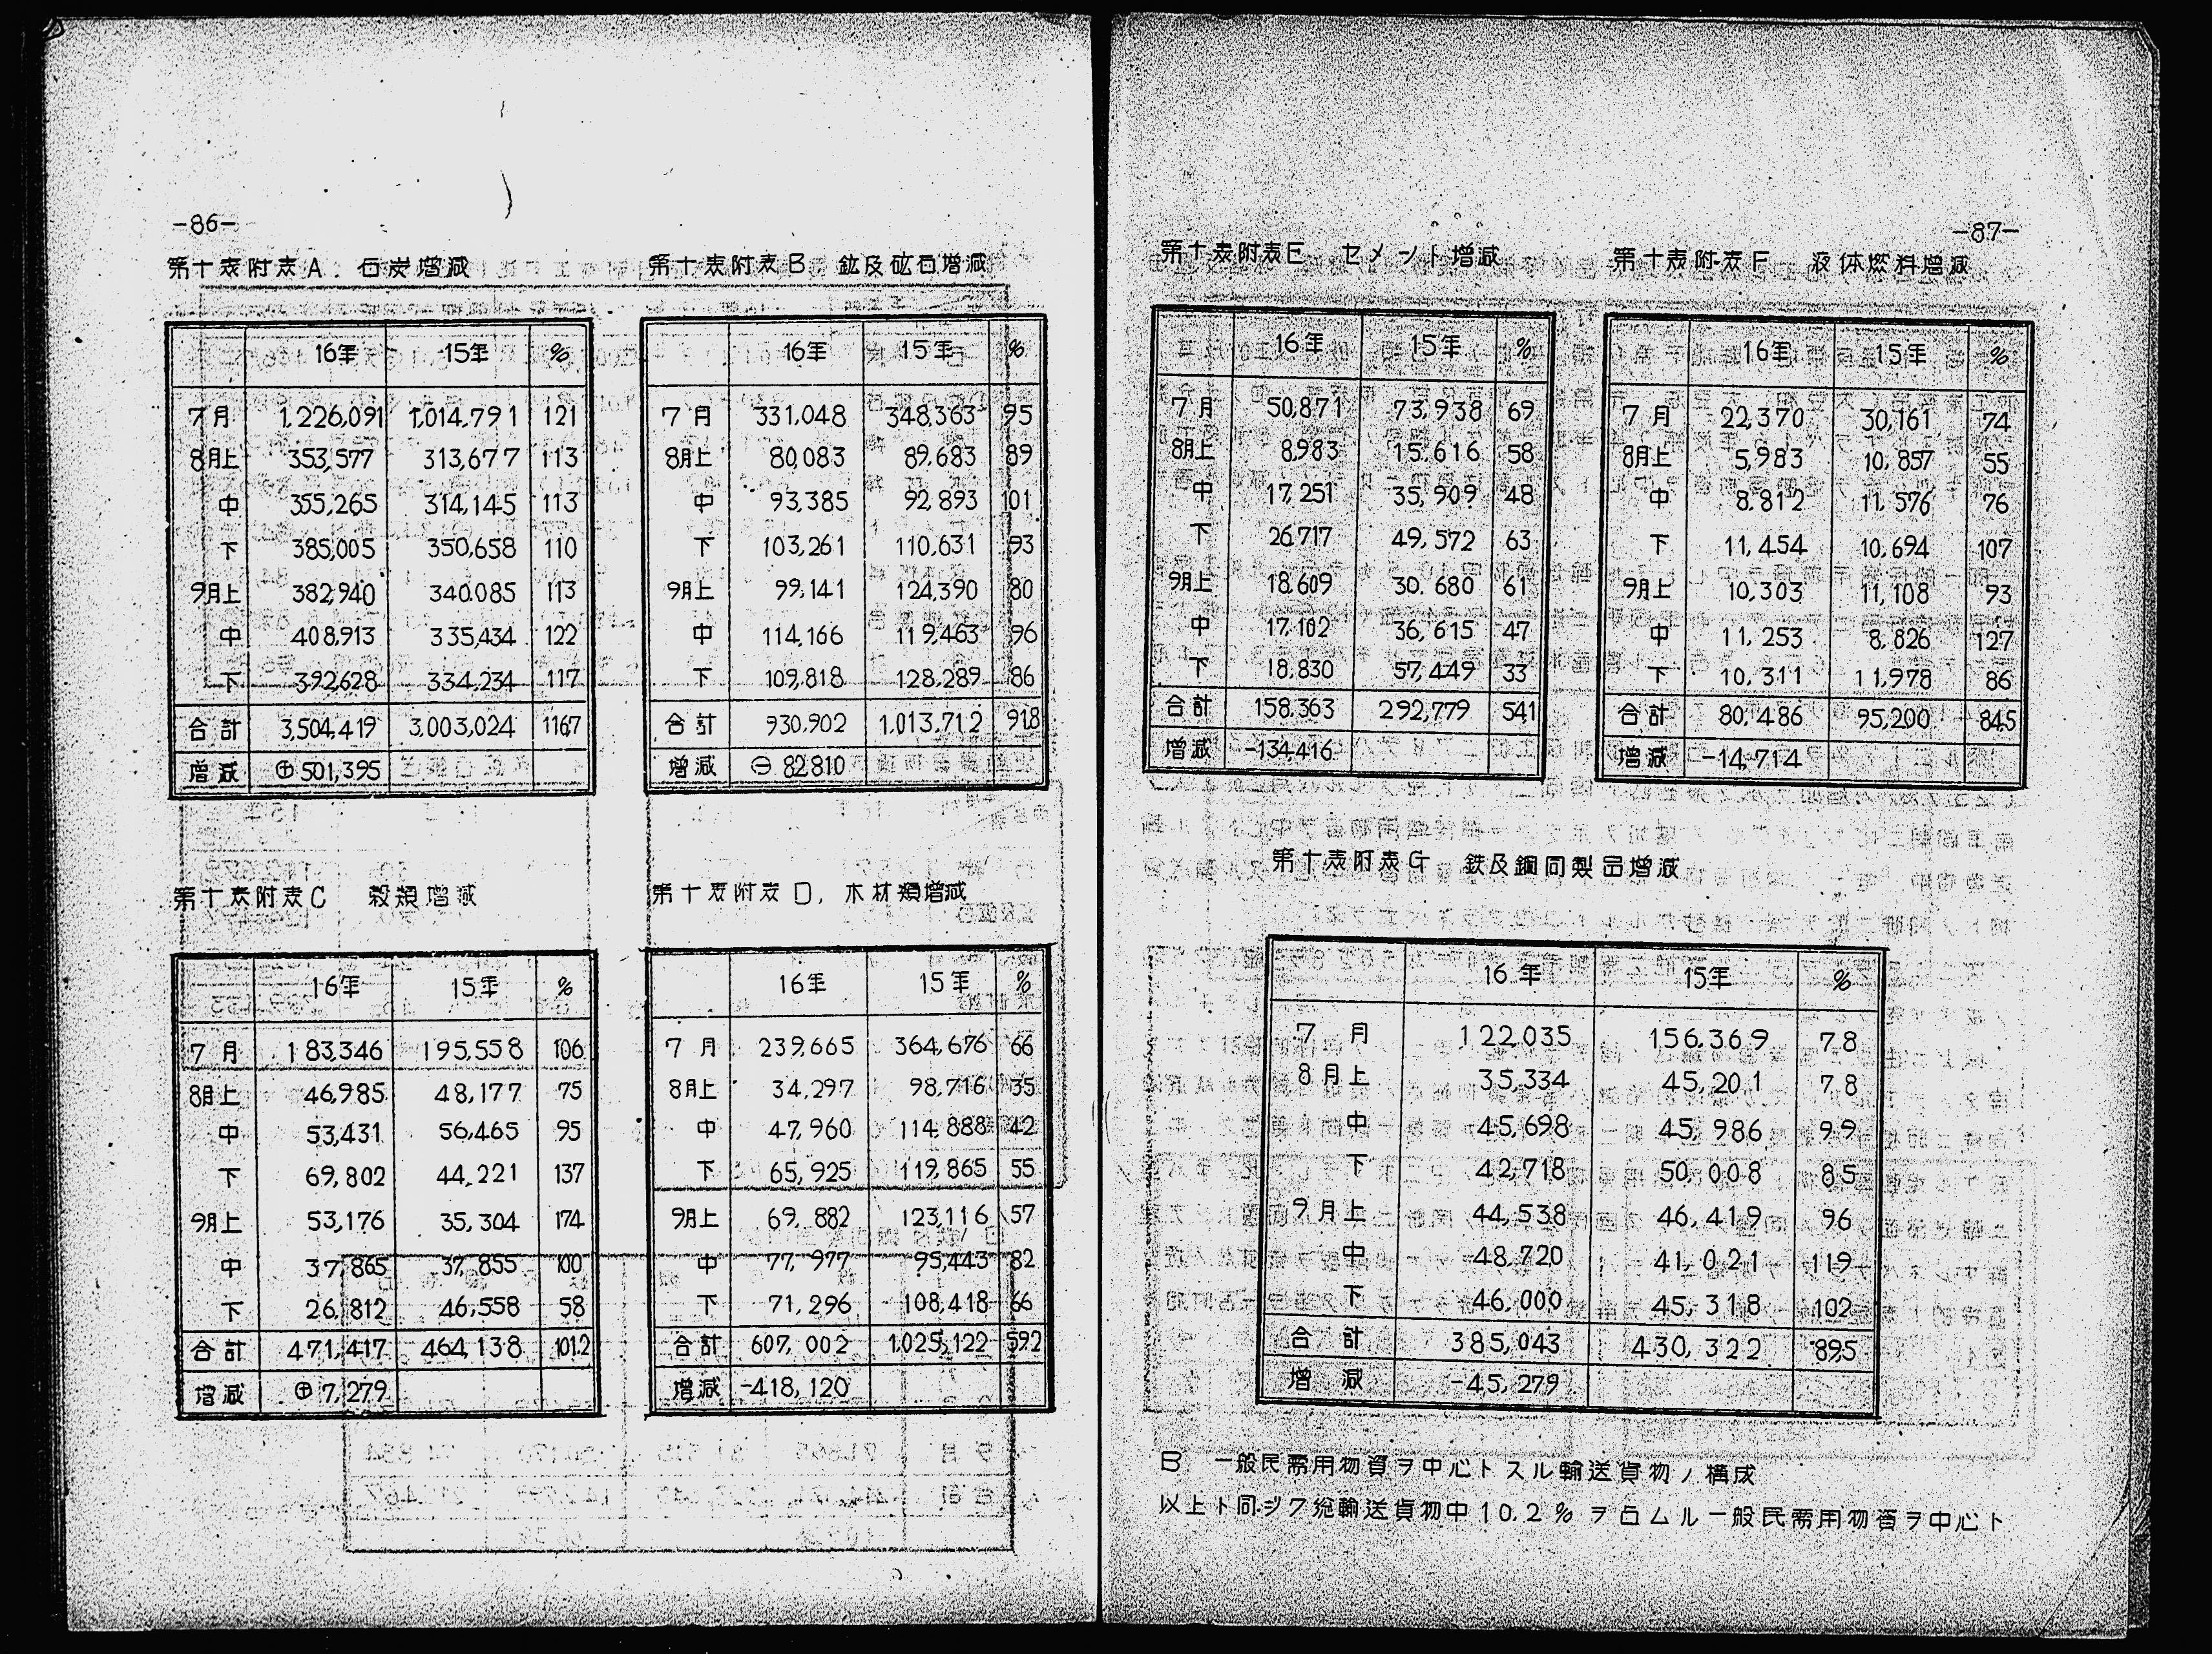 -86-
第十表附表A. 石炭増減
16年 15年 %
7月 1,226,091 1,014,791 121
8月上 353,577 313,677 113
中 355,265 314,145 113
下 385,005 350,658 110
9月上 382,940 340,085 113
中 408,913 335,434 122
下 392,628 334,234 117
合計 3,504,419 3,003,024 116.7
増減 ⊕ 501,395
第十表附表B. 鉱及砿石増減
16年 15年 %
7月 331,048 348,363 95
8月上 80,083 89,683 89
中 93,385 92,893 101
下 103,261 110,631 93
9月上 99,141 124,390 80
中 114,166 119,463 96
下 109,818 128,289 86
合計 930,902 1,013,712 91.8
増減 ⊖ 82,810
第十表附表C 穀類増減
16年 15年 %
7月 183,346 195,558 106
8月上 46,985 48,177 75
中 53,431 56,465 95
下 69,802 44,221 137
9月上 53,176 35,304 174
中 37,865 37,855 100
下 26,812 46,558 58
合計 471,417 464,138 101.2
増減 ⊕ 7,279
第十表附表D. 木材類増減
16年 15年 %
7月 239,665 364,676 66
8月上 34,297 98,716 35
中 47,960 114,888 42
下 65,925 119,865 55
9月上 69,882 123,116 57
中 77,977 95,443 82
下 71,296 108,418 66
合計 607,002 1,025,122 59.2
増減 -418,120
-87-
第十表附表E セメント増減
16年 15年 %
7月 50,871 73,938 69
8月上 8,983 15,616 58
中 17,251 35,909 48
下 26,717 49,572 63
9月上 18,609 30,680 61
中 17,102 36,615 47
下 18,830 57,449 33
合計 158,363 292,779 54.1
増減 -134,416
第十表附表F 液体燃料増減
16年 15年 %
7月 22,370 30,161 74
8月上 5,983 10,857 55
中 8,812 11,576 76
下 11,454 10,694 107
9月上 10,303 11,108 93
中 11,253 8,826 127
下 10,311 11,978 86
合計 80,486 95,200 84.5
増減 -14,714
第十表附表G 鉄及鋼同製品増減
16年 15年 %
7月 122,035 156,369 78
8月上 35,334 45,201 78
中 45,698 45,986 99
下 42,718 50,008 85
9月上 44,538 46,419 96
中 48,720 41,021 119
下 46,000 45,318 102
合計 385,043 430,322 89.5
増減 -45,279
B 一般民需用物資ヲ中心トスル輸送貨物ノ構成
以上ト同ジク総輸送貨物中10.2%ヲ占ムル一般民需用物資ヲ中心ト